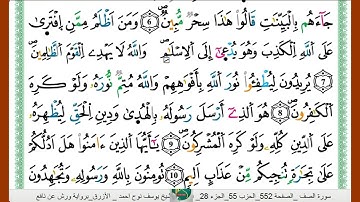 جَآءَهُم بِالْبَيِّنَٰتِ قَالُوا۟ هَٰذَا سِحْرٌ مُّبِينٌ 6 وَمَنَ اَظْلَمُ مِمَّنِ اِفْتَر۪يٰ
عَلَى اَللَّهِ اِلْكَذِبَ وَهُوَ يُدْع۪يٰٓ إِلَى اَلِاسْلَٰمِ وَاللَّهُ لَا يَهْدِے اِلْقَوْمَ اَلظَّٰلِمِينَ
7 يُرِيدُونَ لِيُطْفِـُٔوا۟ نُورَ اَللَّهِ بِأَفْوَٰهِهِمْ وَاللَّهُ مُتِمٌّ نُورَهُۥ وَلَوْ كَرِهَ
اَلْكَٰفِرُونَ 8 هُوَ اَلذِےٓ أَرْسَلَ رَسُولَهُۥ بِالْهُد۪يٰ وَدِينِ اِلْحَقِّ لِيُظْهِرَهُۥ
عَلَى اَلدِّينِ كُلِّهِۦ وَلَوْ كَرِهَ اَلْمُشْرِكُونَ 9 يَٰٓأَيُّهَا اَلذِينَ ءَامَنُوا۟ هَلَ اَدُلُّكُمْ
عَلَىٰ تِجَٰرَةٍ تُنجِيكُم مِّنْ عَذَابٍ اَلِيمٍ 10 تُومِنُونَ بِاللَّهِ وَرَسُولِهِۦ وَتُجَٰهِدُونَ
سورة الصف _ الصفحة 552_ الحزب 55_ الجزء 28 _ الشيخ يوسف نوح أحمد _ الأزرق_برواية ورش عن نافع